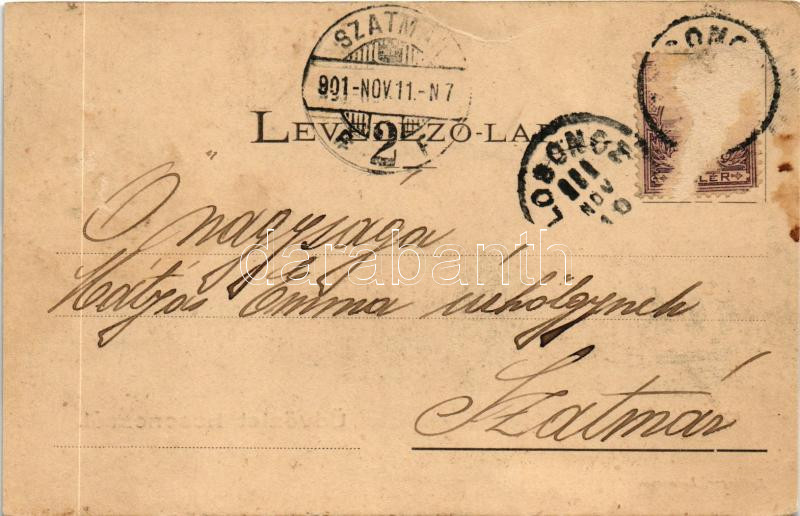 SZATMÁR
901-NOV.11.-N7
2
LEVELEZŐ-LAP
LOSONCZ
NOV
10
LOSONC
LLER
Ő nagysága
Mátyás Emma úrhölgynek
Szatmár
darabanth